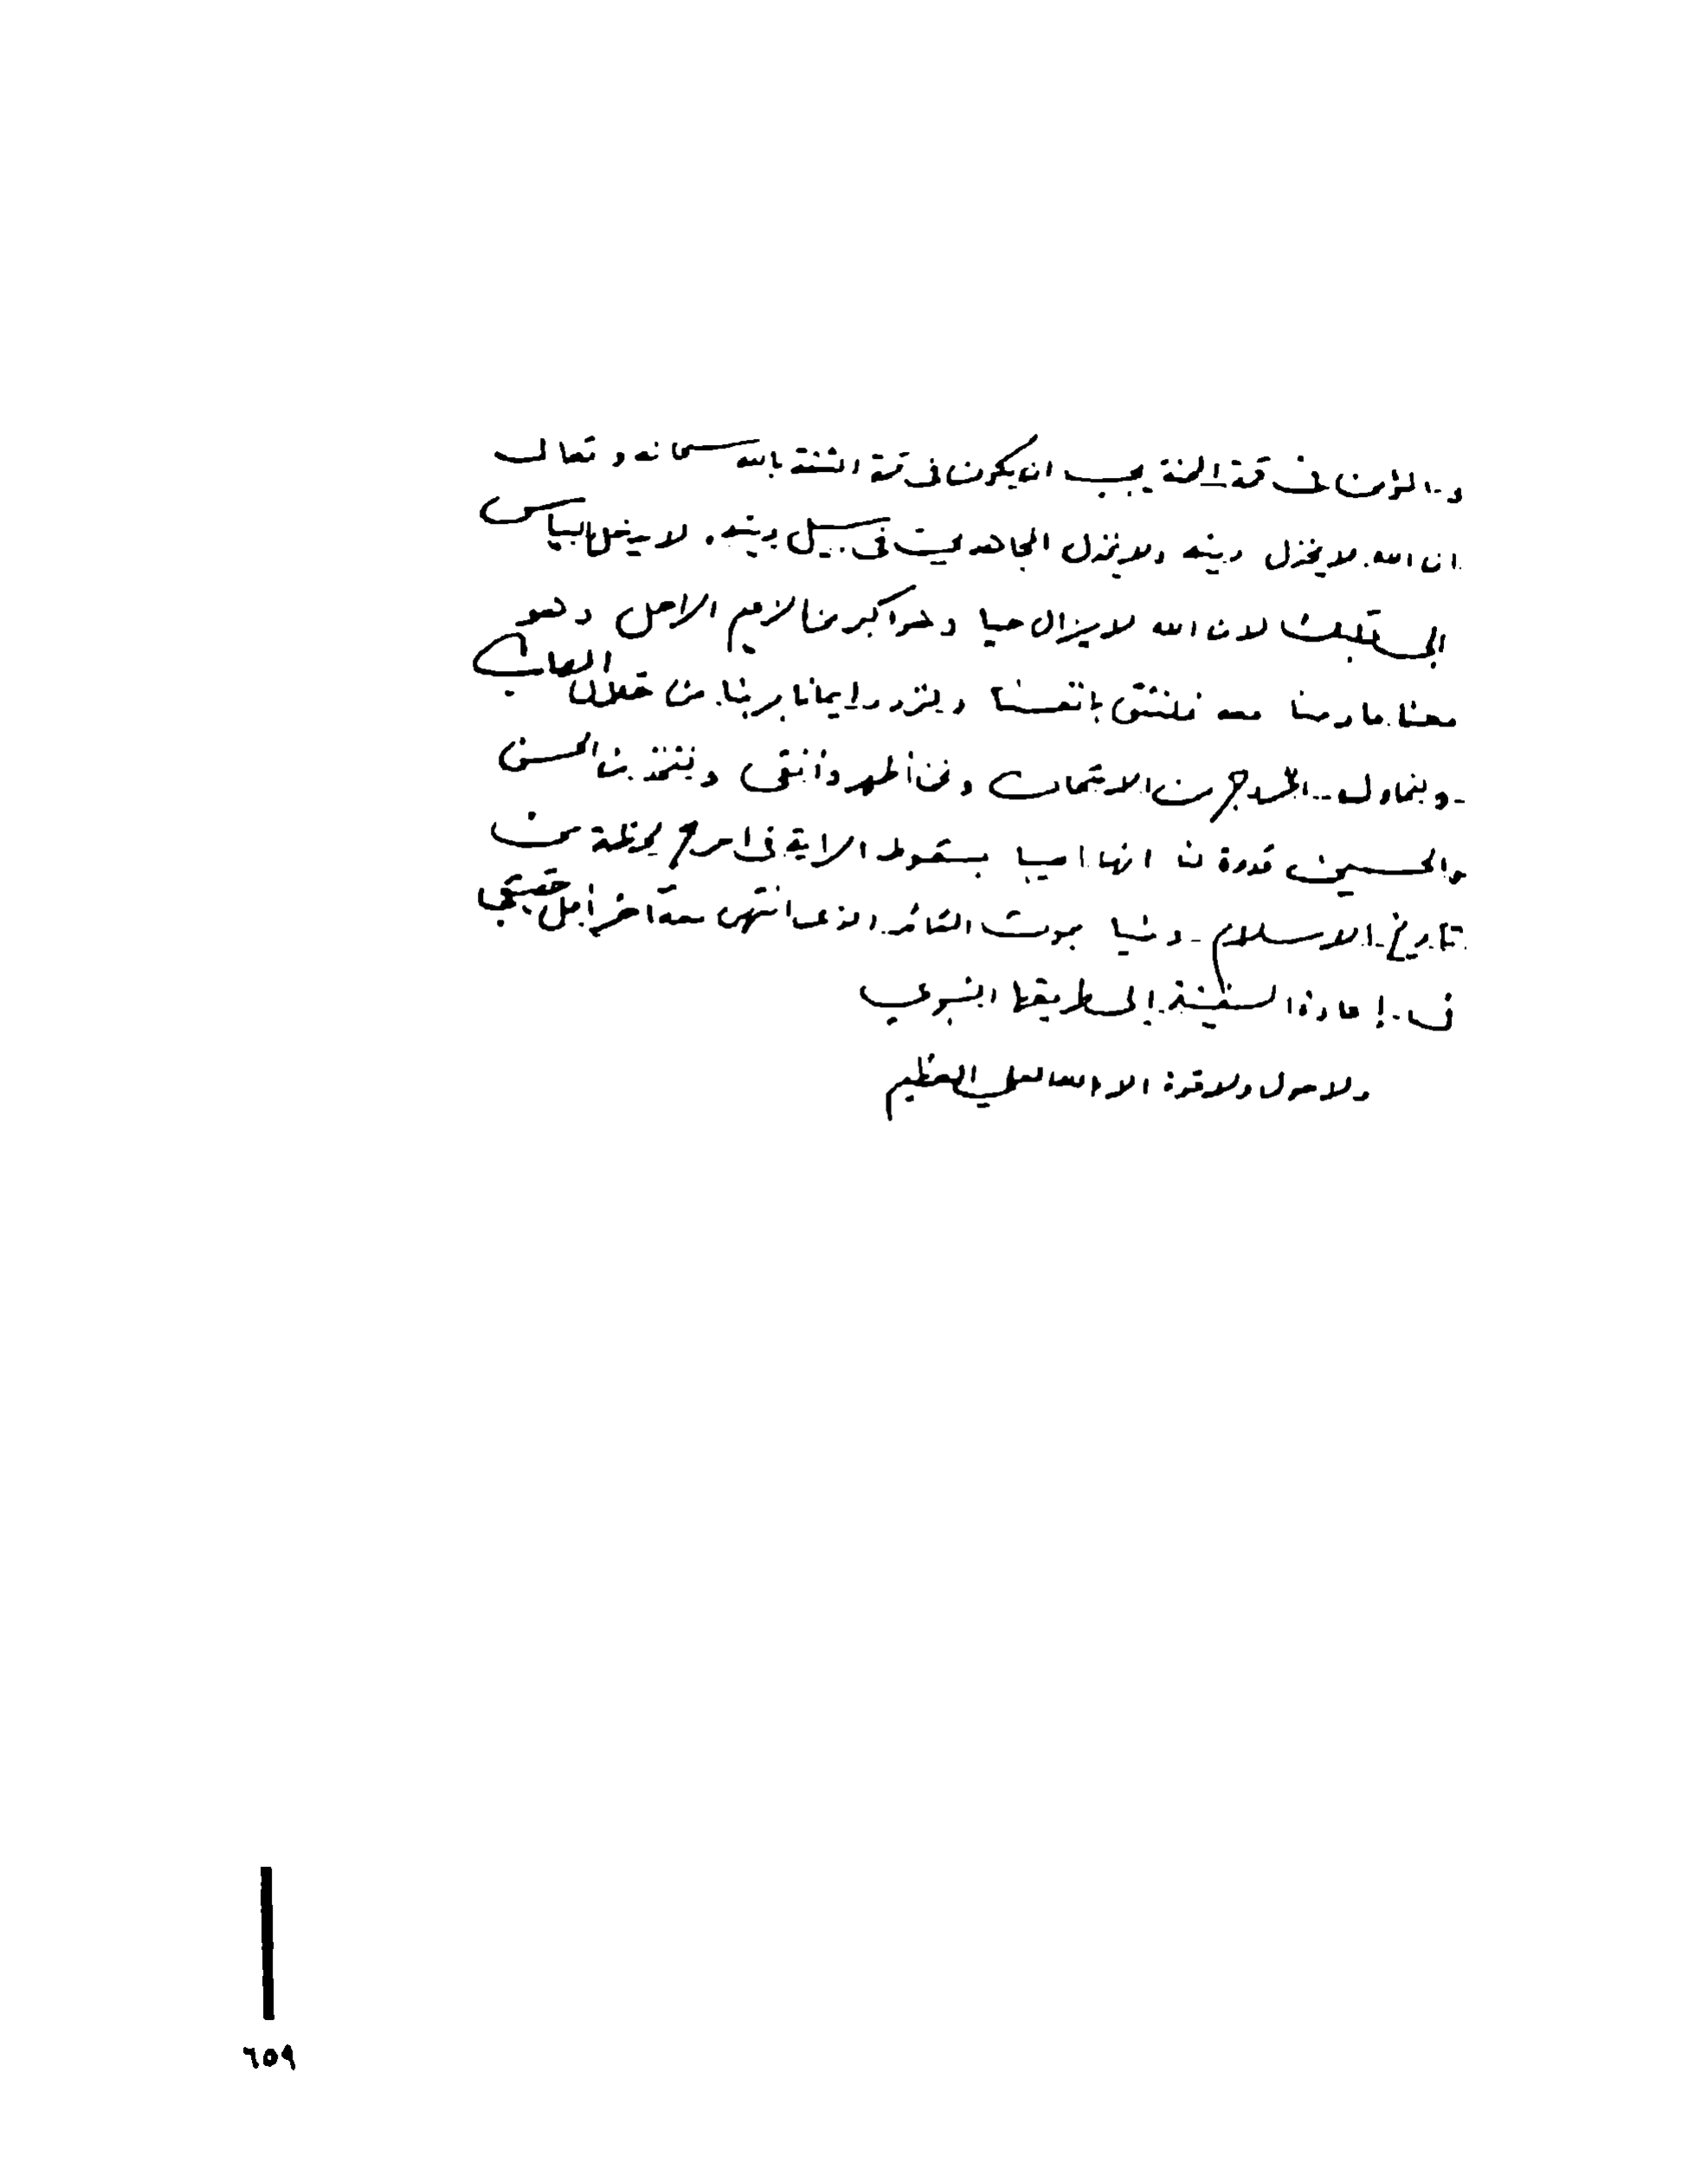 و المؤمن في قمة المحنة يجب ان يكون في قمة الثقة بالله سبحانه و تعالى
ان الله لا يخذل دينه ولا يخذل المجاهد حيث في سبيل دينه. لا يدخل اليأس
الى قلبك لان الله لا يزال حيا وهو اكبر من الزعيم الاصل وهو
معنا ما دمنا معه فلنثق بانفسنا ولنزدد ايمانا بربنا من خلال المصائب
ولنحاول الخروج من الامتحان ونحن أطهر وأنقى ولنتخذ من الحسن
والحسين قدوة لنا انهما اصيبا بسقوط الراية في احرج لحظة من
تاريخ الاسلام وفنيا بموت القائد الذي انتهى معه آخر أمل حقيقي
في إعادة السفينة إلى طريقها النبوي
ولا حول ولا قوة الا بالله العلي العظيم
٦٥٩